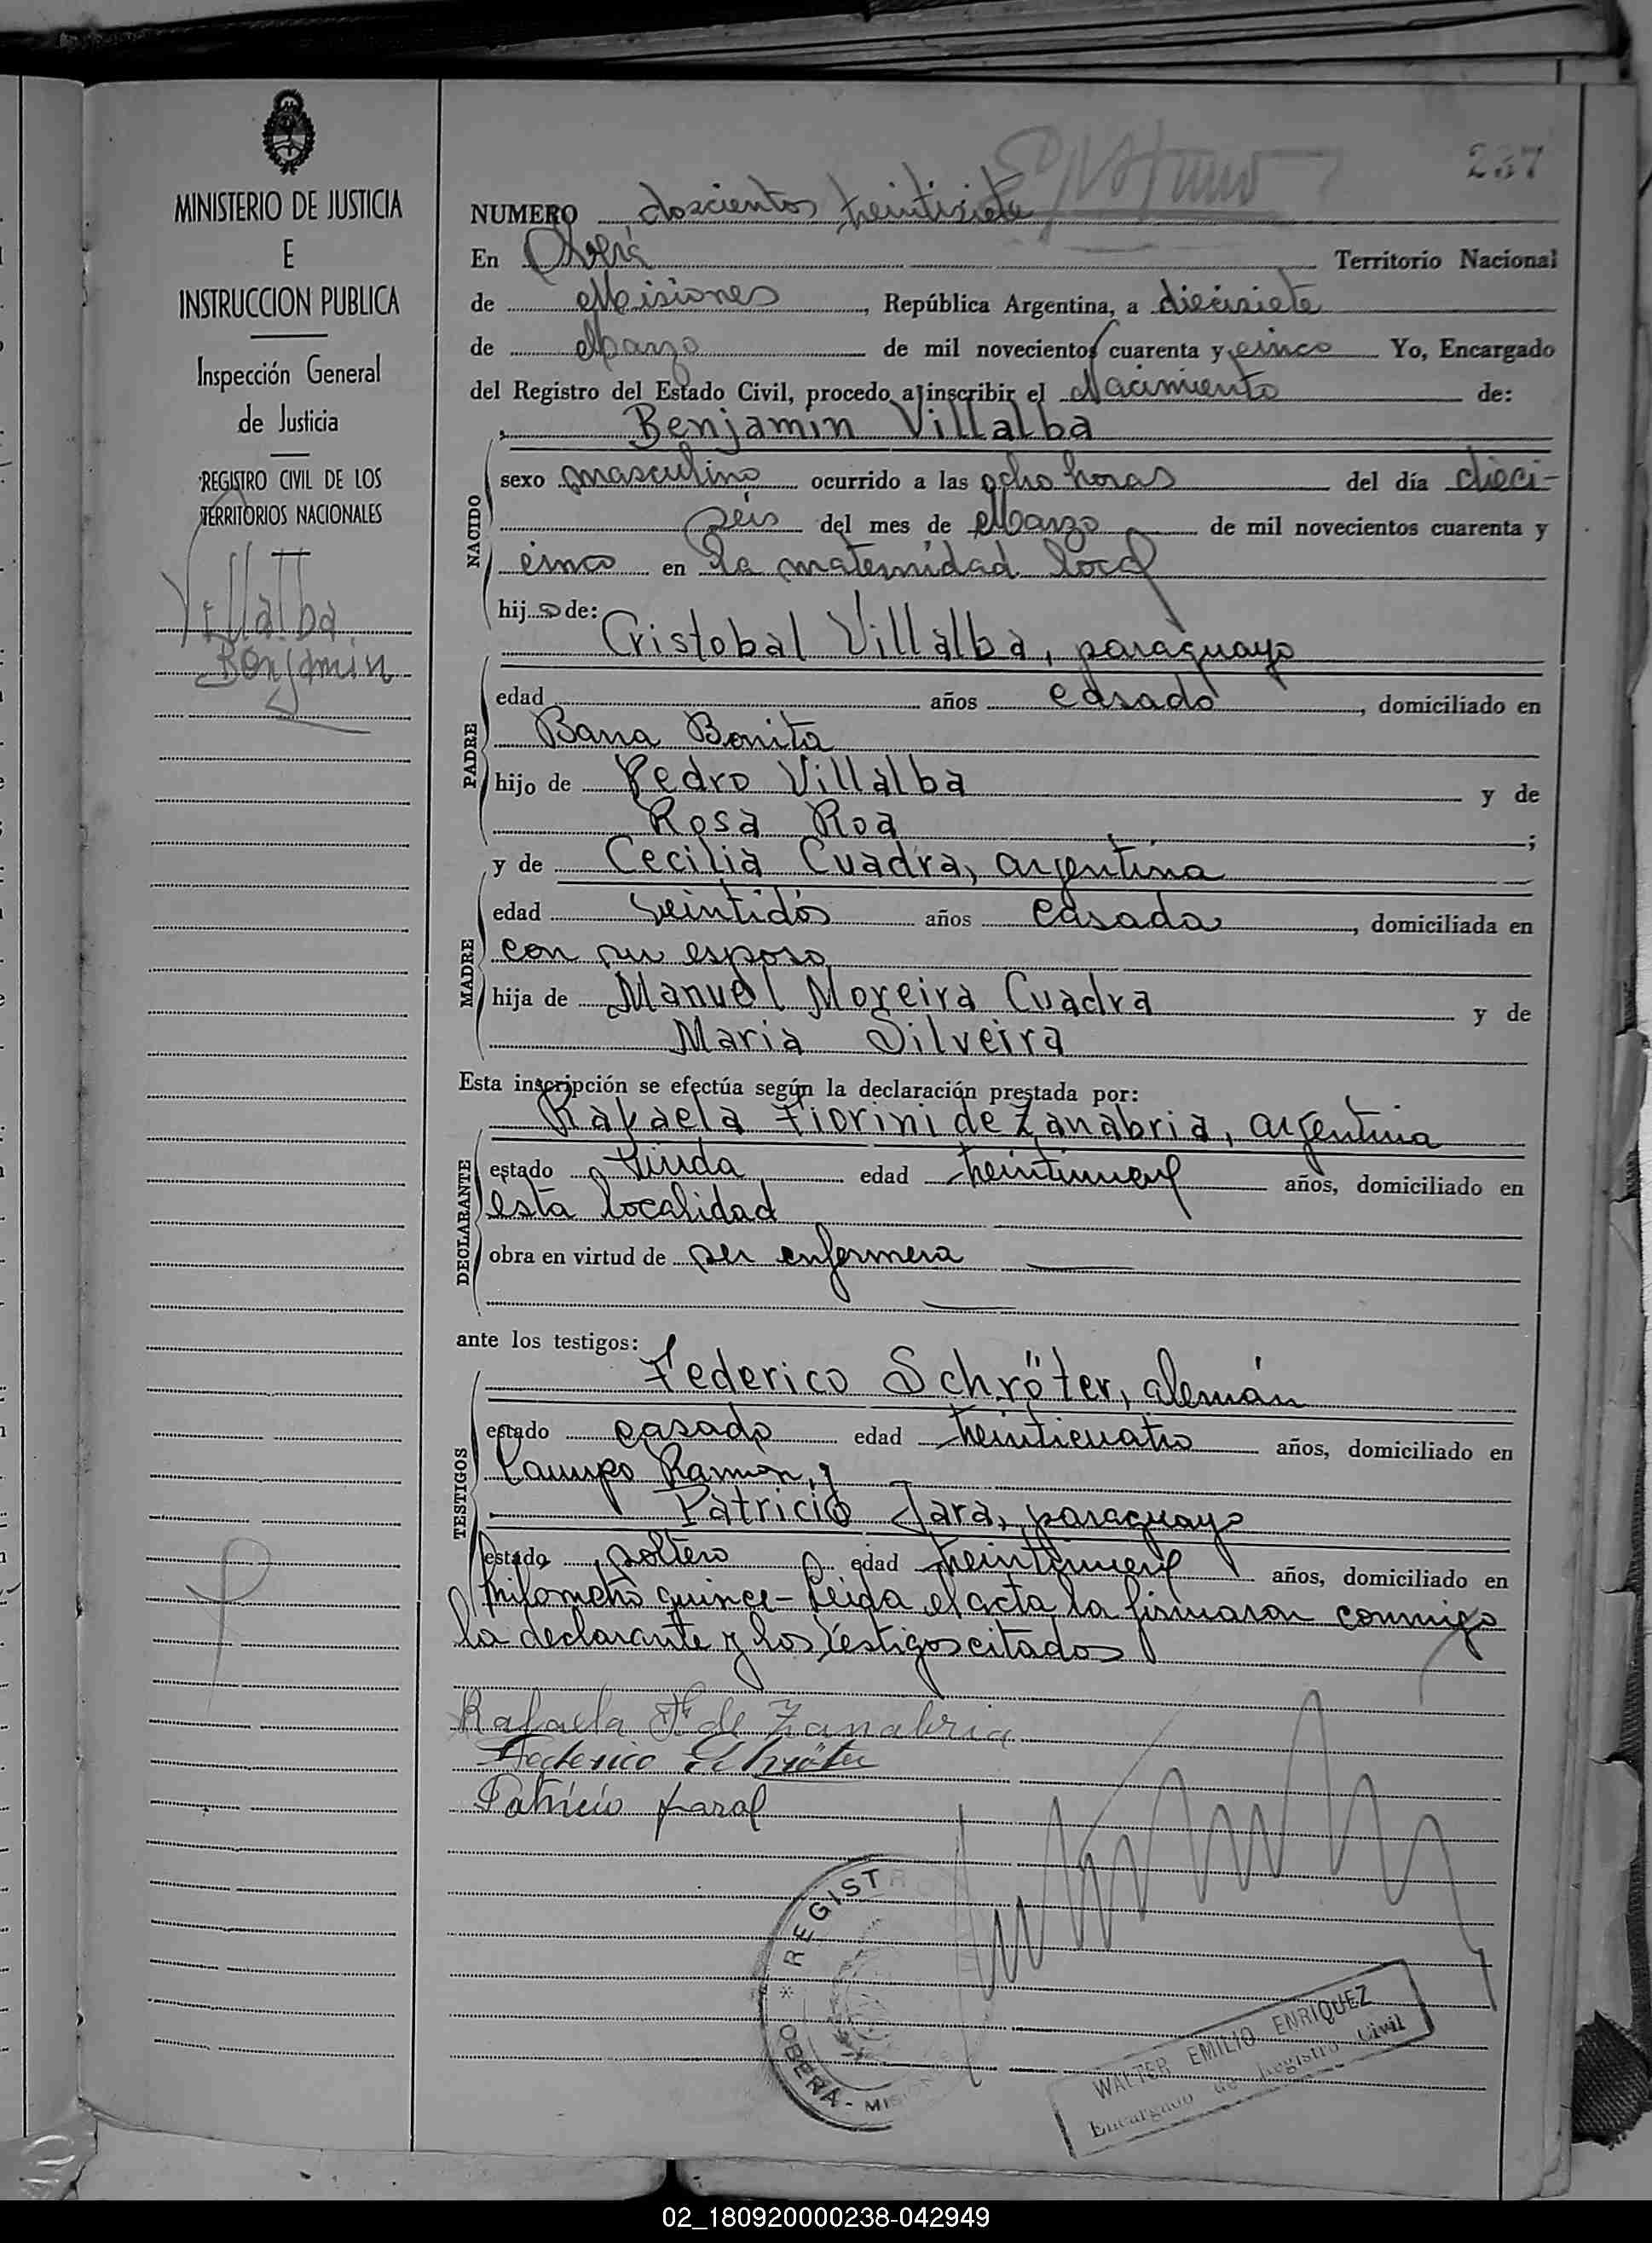 MINISTERIO DE JUSTICIA
E
INSTRUCCION PUBLICA
Inspección General
de Justicia
REGISTRO CIVIL DE LOS
TERRITORIOS NACIONALES
Villalba
Benjamin
237
NUMERO doscientos treintisiete
En Oberá Territorio Nacional
de Misiones, República Argentina, a diecisiete
de Marzo de mil novecientos cuarenta y cinco Yo, Encargado
del Registro del Estado Civil, procedo a inscribir el Nacimiento de:
Benjamin Villalba
NACIDO
sexo masculino ocurrido a las ocho horas del día dieci-
seis del mes de Marzo de mil novecientos cuarenta y
cinco en la maternidad local
hijo de:
Cristobal Villalba, paraguayo
PADRE
edad años casado, domiciliado en
Barra Bonita
hijo de Pedro Villalba y de
Rosa Roa ;
y de Cecilia Cuadra, argentina
MADRE
edad veintidós años casada, domiciliada en
con su esposo
hija de Manuel Moreira Cuadra y de
Maria Silveira
Esta inscripción se efectúa según la declaración prestada por:
Rafaela Fiorini de Zanabria, argentina
DECLARANTE
estado viuda edad treintinueve años, domiciliado en
esta localidad
obra en virtud de ser enfermera
ante los testigos:
Federico Schröter, alemán
TESTIGOS
estado casado edad treinticuatro años, domiciliado en
Campo Ramon, y
Patricio Jara, paraguayo
estado soltero edad treintinueve años, domiciliado en
kilometro quince - Leida el acta la firmaron conmigo
la declarante y los testigos citados
Rafaela F. de Zanabria
Federico Schröter
Patricio Jara
* REGISTRO
OBERÁ - MISIONES
WALTER EMILIO ENRIQUEZ
Encargado de Registro Civil
02_180920000238-042949